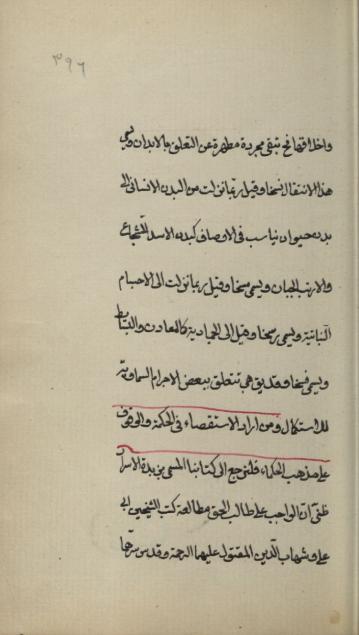 ٣٩٦
واخلاقها فح تبقى مجردة مطهرة عن التعلق بالابدان ويسمى
هذا الانتقال نسخا وقيل ربما نزلت من البدن الانسانى الى
بدن حيوان يناسب فى الاوصاف كبدن الاسد للشجاع
والارنب للجبان ويسمى مسخا وقيل ربما نزلت الى الاجسام
النباتية ويسمى رسخا وقيل الى الجمادية كالمعادن والبسائط
ويسمى فسخا وقد يق هى تتعلق ببعض الاجرام السماوية
للاستكمال ومن اراد الاستقصاء فى الحكمة والوقوف
على مذهب الحكماء فليرجع الى كتابنا المسمى بزبدة الاسرار
ظنى ان الواجب على طالب الحق مطالعة كتب الشيخين ابى
على وشهاب الدين المقتول عليهما الرحمة وقدس سرهما